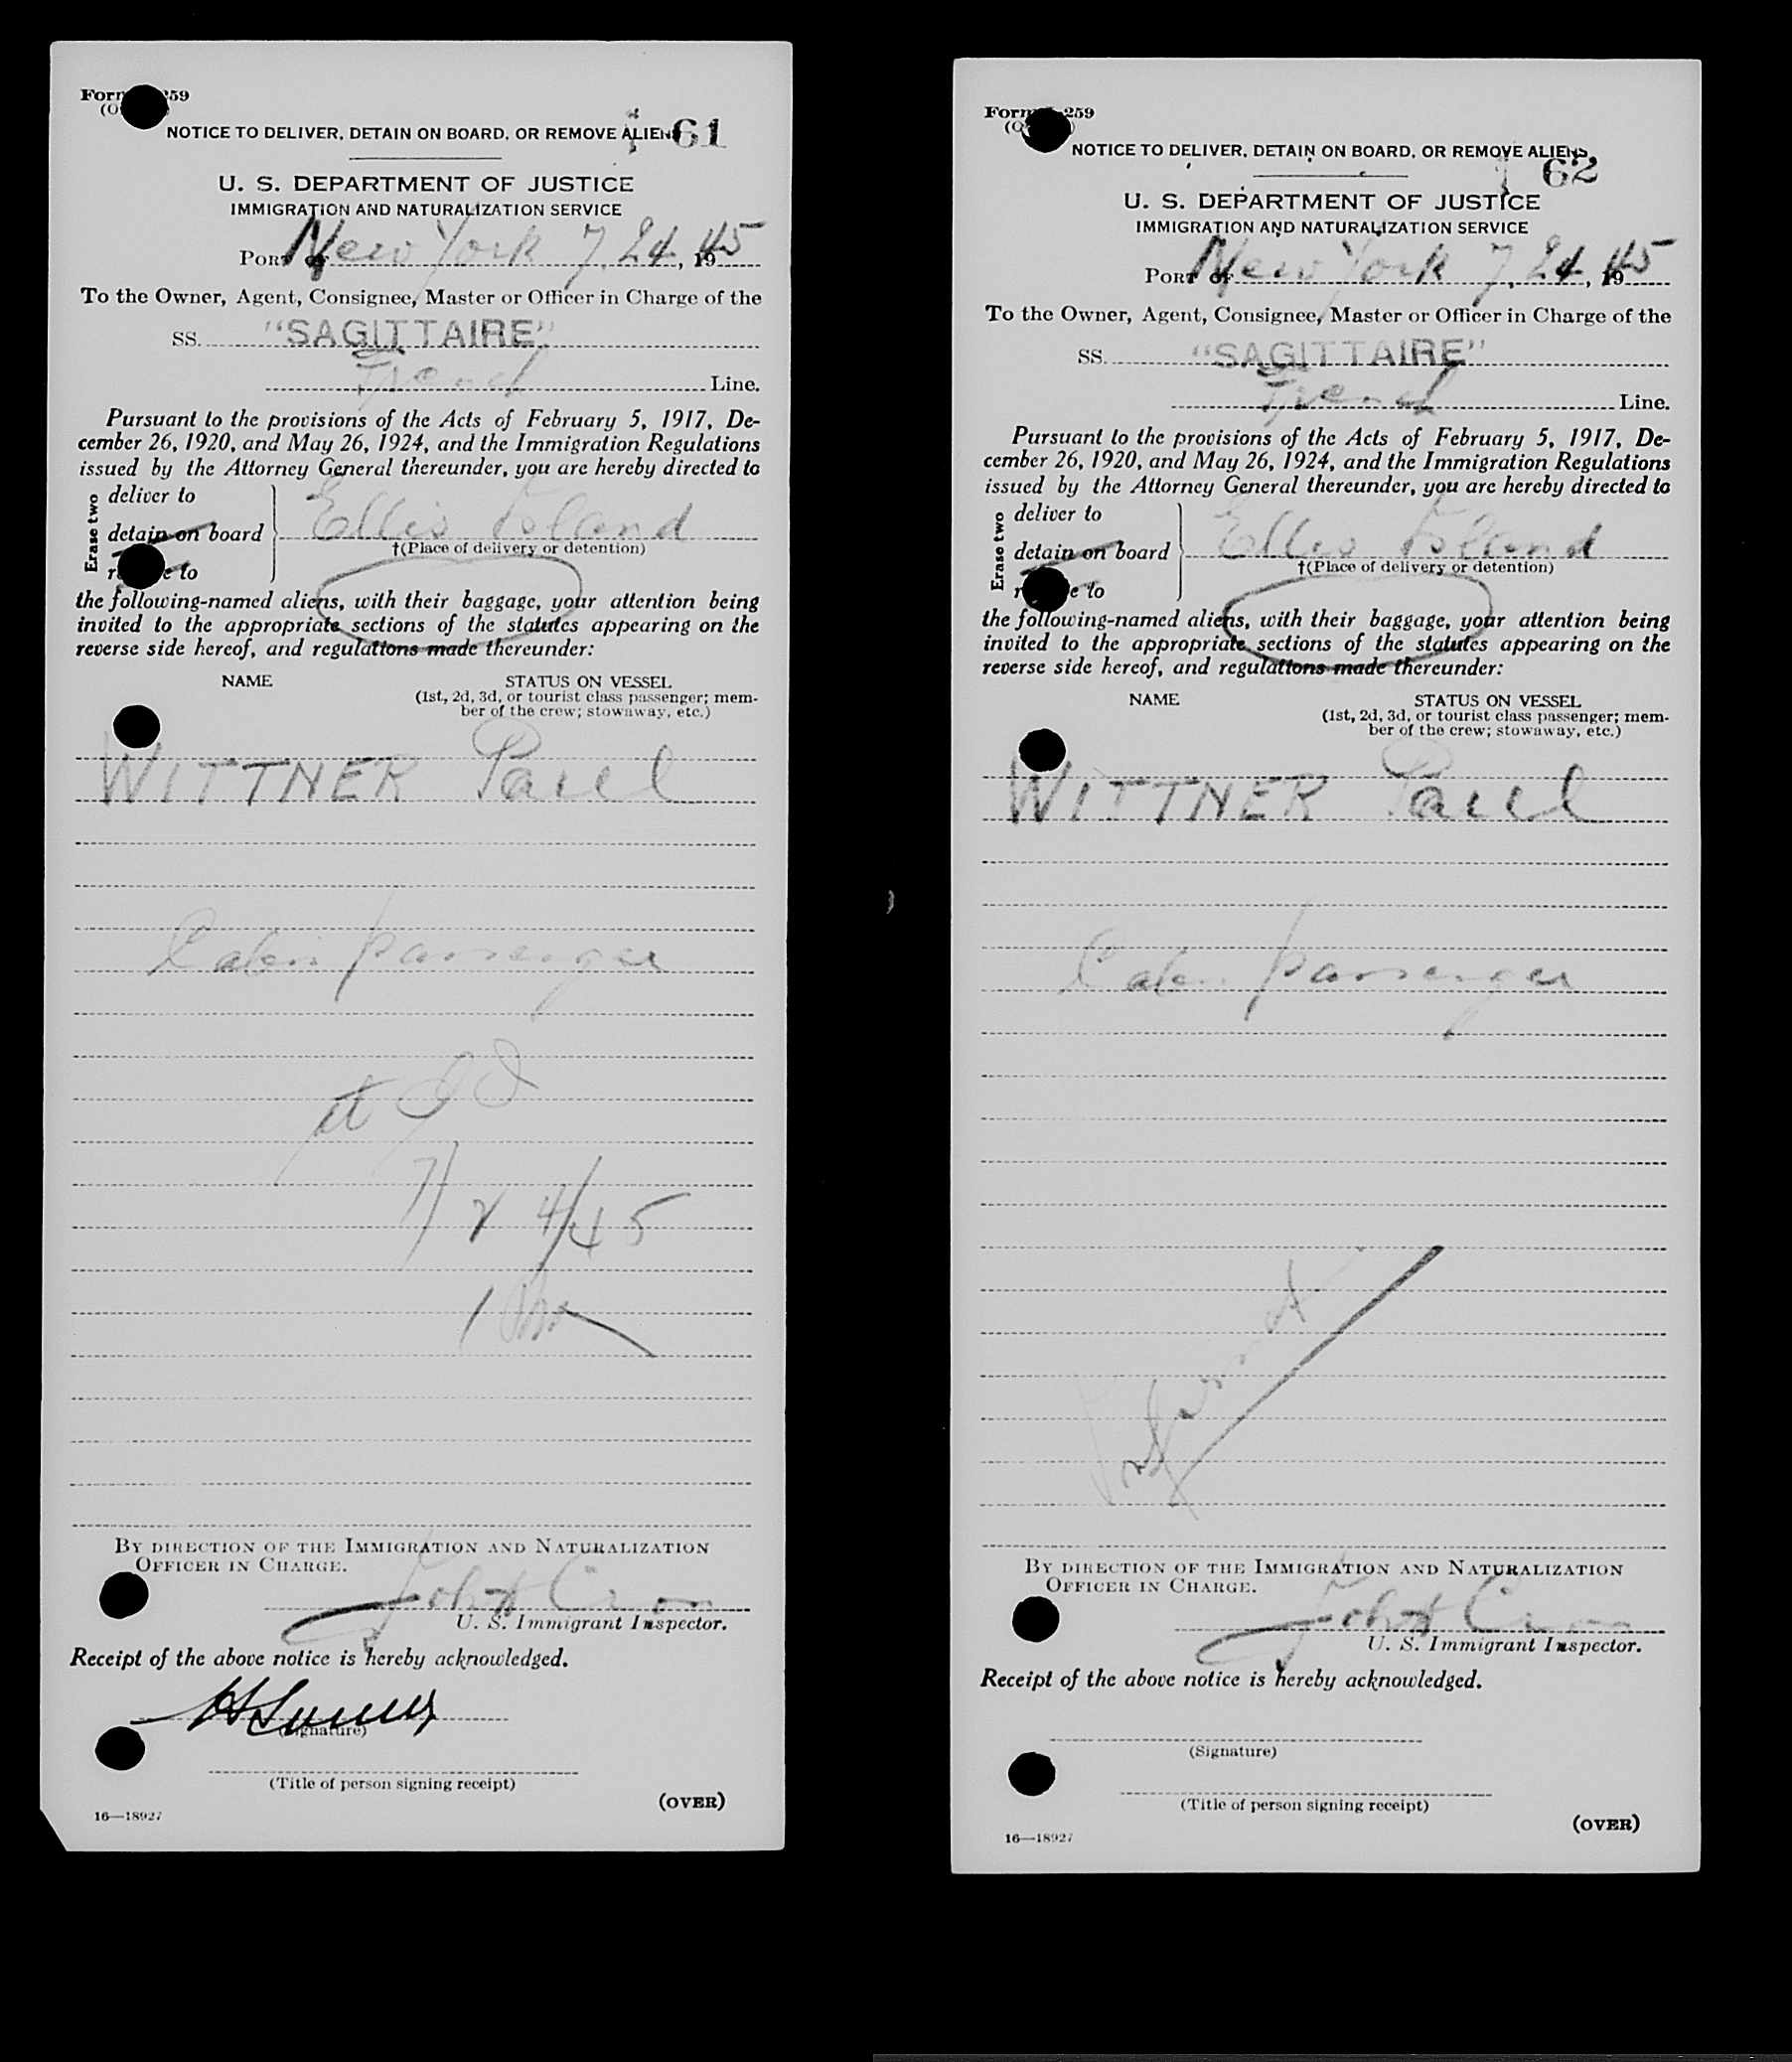 Form 259
NOTICE TO DELIVER, DETAIN ON BOARD, OR REMOVE ALIENS
61
U. S. DEPARTMENT OF JUSTICE
IMMIGRATION AND NATURALIZATION SERVICE
PORT OF New York 7.24, 1945
To the Owner, Agent, Consignee, Master or Officer in Charge of the
SS. "SAGITTAIRE"
French Line.
Pursuant to the provisions of the Acts of February 5, 1917, De-
cember 26, 1920, and May 26, 1924, and the Immigration Regulations
issued by the Attorney General thereunder, you are hereby directed to
Erase two
deliver to
detain on board
to
Ellis Island
†(Place of delivery or detention)
the following-named aliens, with their baggage, your attention being
invited to the appropriate sections of the statutes appearing on the
reverse side hereof, and regulations made thereunder:
NAME
STATUS ON VESSEL
(1st, 2d, 3d, or tourist class passenger; mem-
ber of the crew; stowaway, etc.)
WITTNER Paul
Cabin passenger
7/24/45
BY DIRECTION OF THE IMMIGRATION AND NATURALIZATION
OFFICER IN CHARGE.
U. S. Immigrant Inspector.
Receipt of the above notice is hereby acknowledged.
(Signature)
(Title of person signing receipt)
16—18927
(OVER)
Form 259
NOTICE TO DELIVER, DETAIN ON BOARD, OR REMOVE ALIENS
62
U. S. DEPARTMENT OF JUSTICE
IMMIGRATION AND NATURALIZATION SERVICE
PORT OF New York 7.24, 1945
To the Owner, Agent, Consignee, Master or Officer in Charge of the
SS. "SAGITTAIRE"
French Line.
Pursuant to the provisions of the Acts of February 5, 1917, De-
cember 26, 1920, and May 26, 1924, and the Immigration Regulations
issued by the Attorney General thereunder, you are hereby directed to
Erase two
deliver to
detain on board
to
Ellis Island
†(Place of delivery or detention)
the following-named aliens, with their baggage, your attention being
invited to the appropriate sections of the statutes appearing on the
reverse side hereof, and regulations made thereunder:
NAME
STATUS ON VESSEL
(1st, 2d, 3d, or tourist class passenger; mem-
ber of the crew; stowaway, etc.)
WITTNER Paul
Cabin passenger
BY DIRECTION OF THE IMMIGRATION AND NATURALIZATION
OFFICER IN CHARGE.
U. S. Immigrant Inspector.
Receipt of the above notice is hereby acknowledged.
(Signature)
(Title of person signing receipt)
16—18927
(OVER)